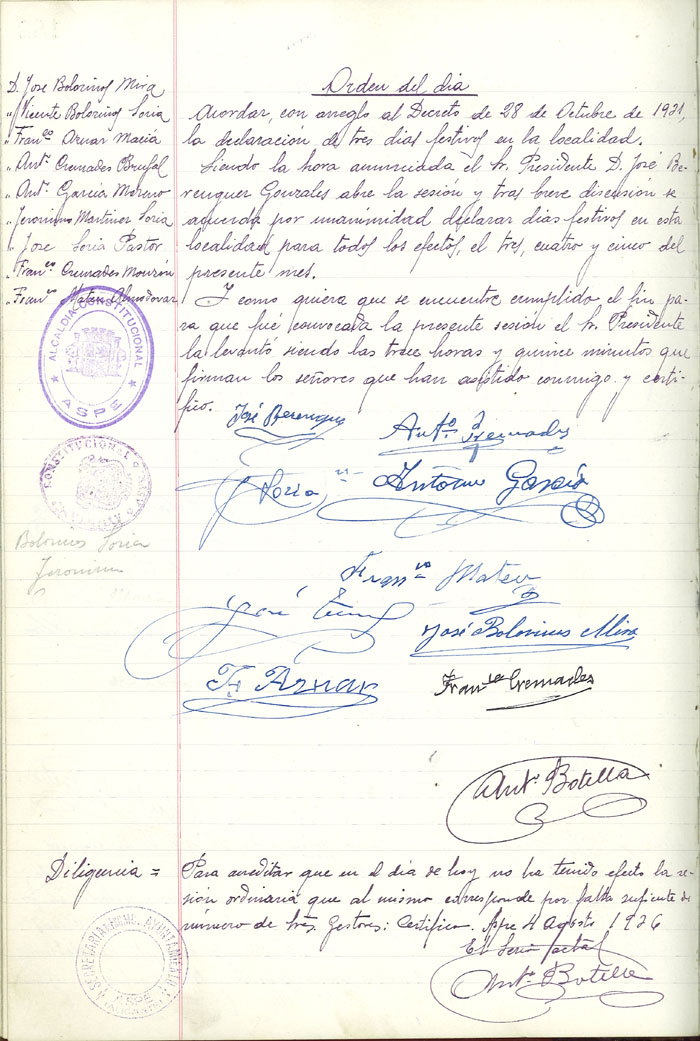 Orden del dia
D. Jose Bolorinos Mira
" Vicente Bolorinos Soria
" Fran.co Aznar Macia
" Ant.o Cremades Brufal
" Ant.o García Moreno
" Jeronimo Martinez Soria
" Jose Soria Pastor
" Fran.co Cremades Monzón
" Fran.co Mateu Almodovar
Acordar, con arreglo al Decreto de 28 de Octubre de 1931,
la declaración de tres dias festivos en la localidad.
Siendo la hora anunciada el Sr. Presidente D. José Be-
renguer Gonzales abre la sesión y tras breve discusión se
acuerda por unanimidad declarar dias festivos en esta
localidad para todos los efectos, el tres, cuatro y cinco del
presente mes.
Y como quiera que se encuentre cumplido el fin pa-
ra que fué convocada la presente sesión el Sr. Presidente
la levantó siendo las trece horas y quince minutos que
firman los señores que han asistido conmigo y certi-
fico.
ALCALDIA CONSTITUCIONAL
ASPE
CONSTITUCIONAL
José Berenguer
Ant.o Cremades
Soria
Antonio García
Bolorinos Soria
Jeronimo
Fran.co Mateu
José
José Bolorinos Mira
F. Aznar
Fran.co Cremades
Ant.o Botella
Diligencia =
Para acreditar que en el día de hoy no ha tenido efecto la se-
sión ordinaria que al mismo corresponde por falta suficiente de
número de Sres. Gestores: Certifico. Aspe 4 Agosto 1936
El Secretario
Ant.o Botella
SECRETARIA DEL AYUNTAMIENTO
ASPE